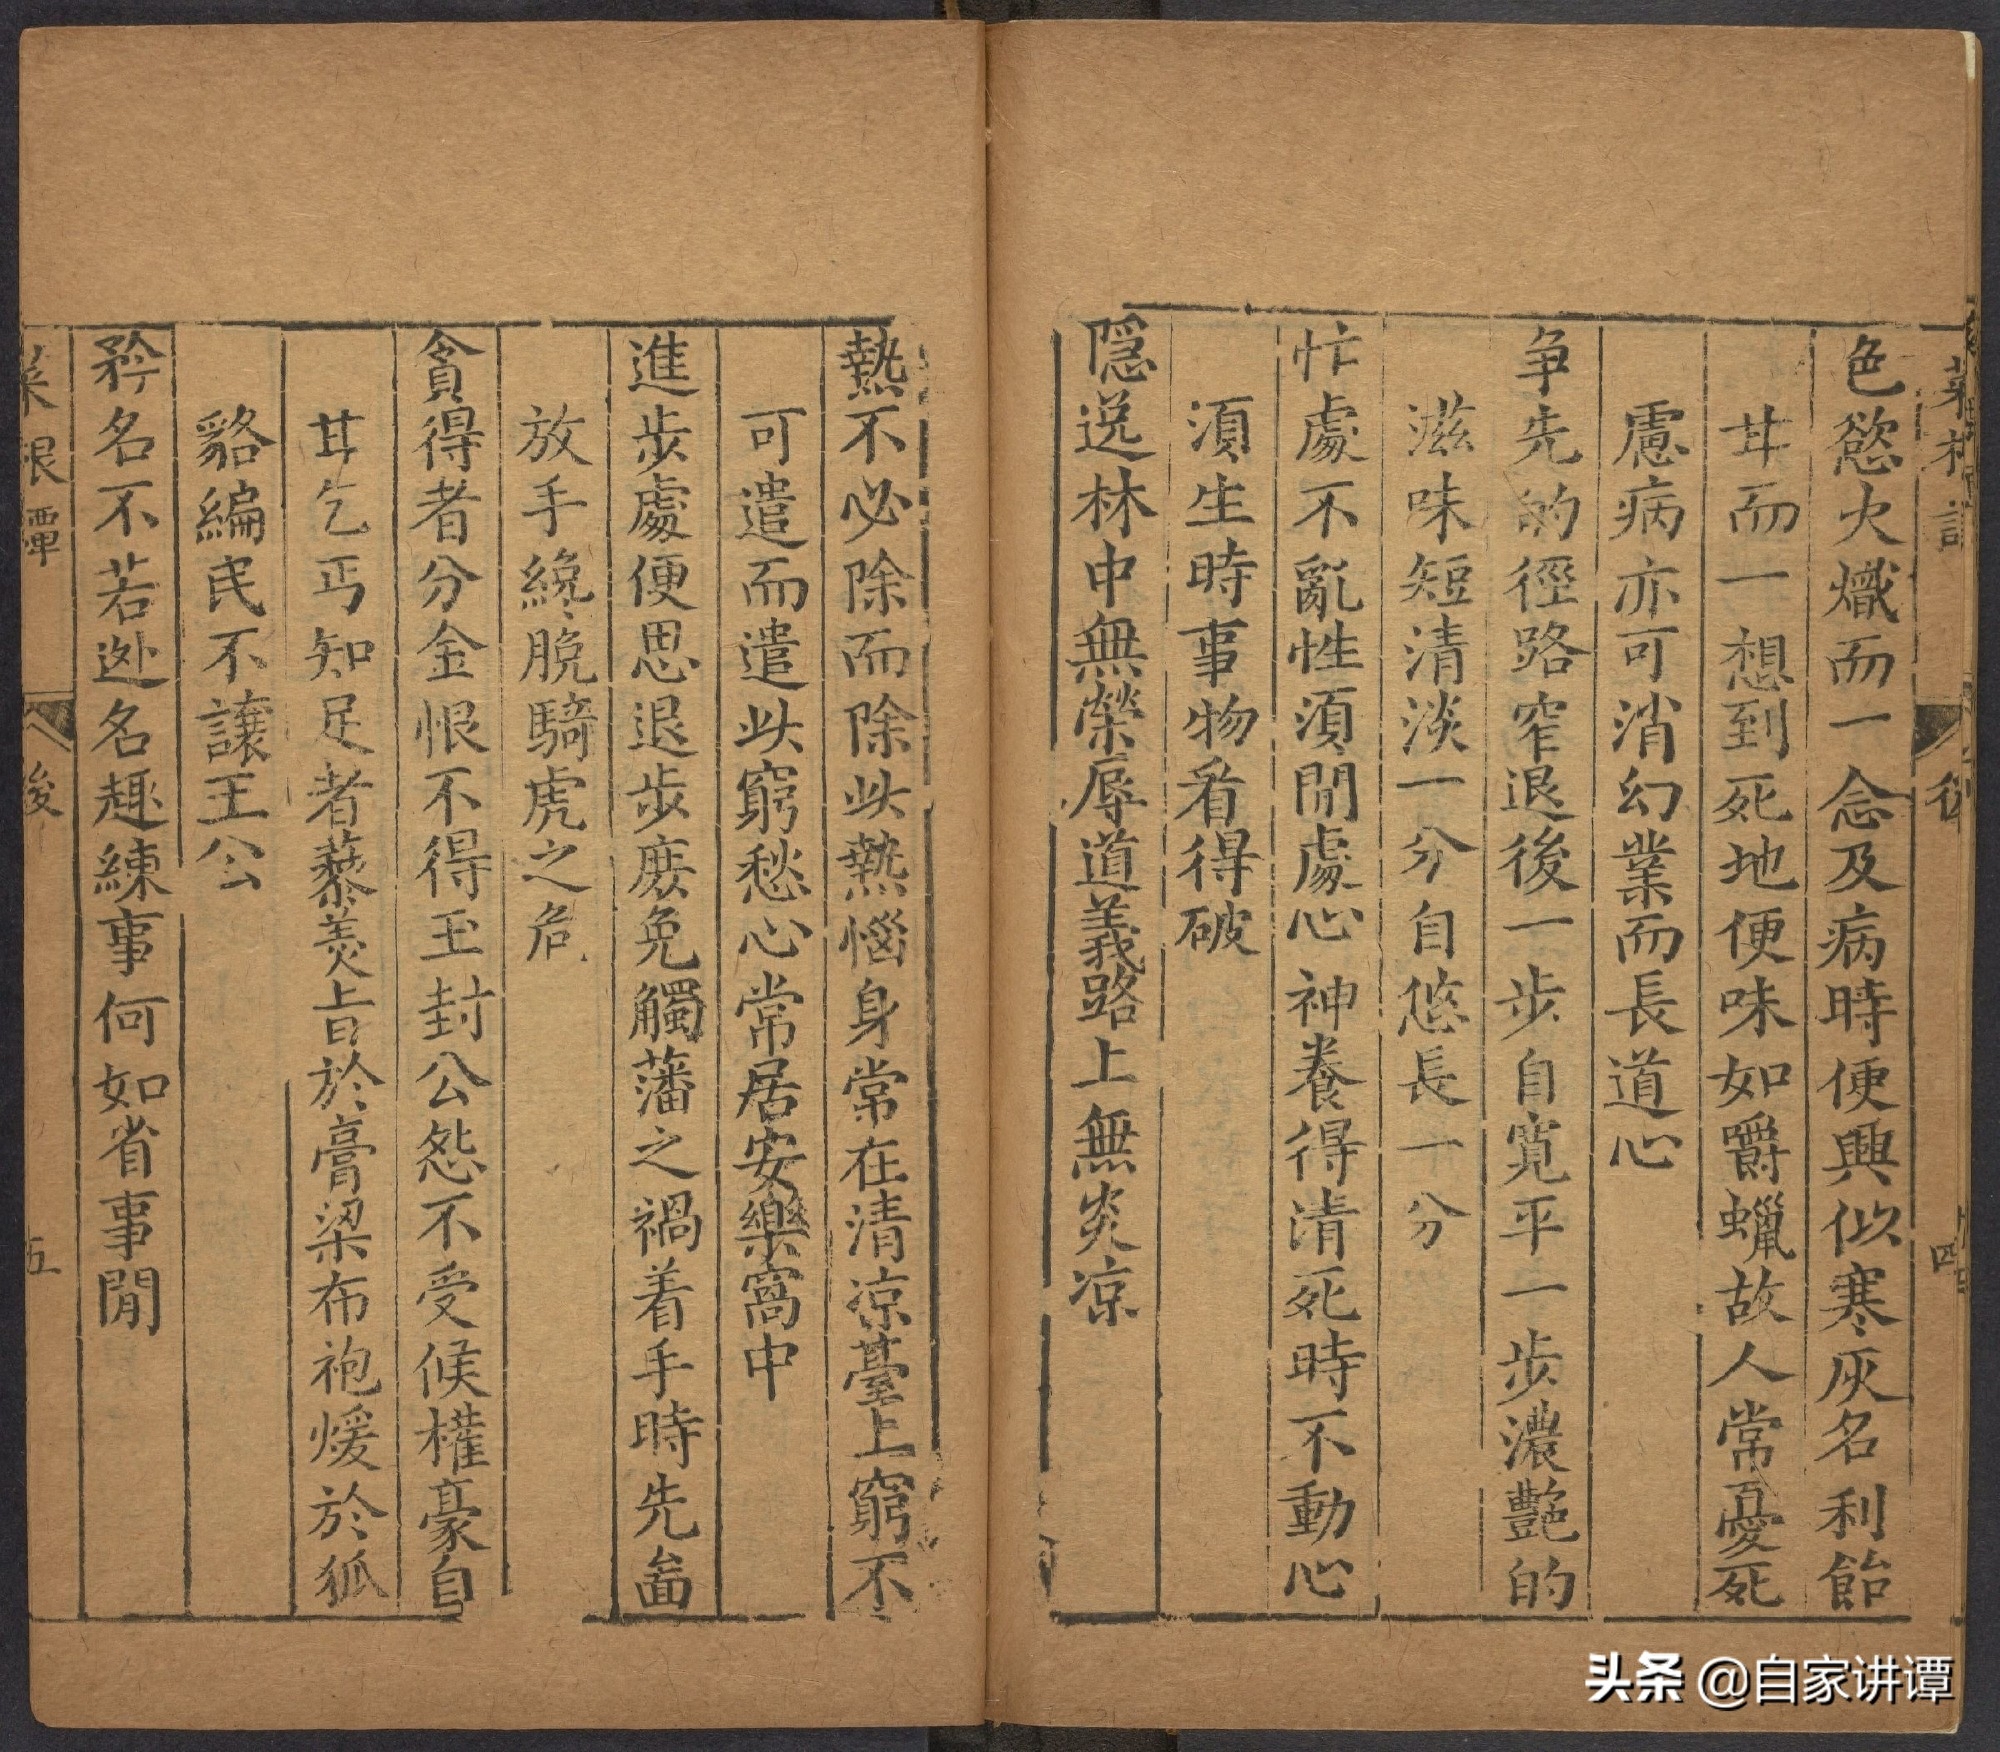 菜根譚
後
四
色慾火熾而一念及病時便興似寒灰名利飴
甘而一想到死地便味如嚼蠟故人常憂死
慮病亦可消幻業而長道心
争先的徑路窄退後一步自寬平一步濃艷的
滋味短清淡一分自悠長一分
忙處不亂性須閒處心神養得清死時不動心
須生時事物看得破
隱逸林中無榮辱道義路上無炎凉
熱不必除而除此熱惱身常在清凉臺上窮不
可遣而遣此窮愁心常居安樂窩中
進步處便思退步庶免觸藩之禍着手時先畣
放手纔脫騎虎之危
貪得者分金恨不得玉封公怨不受侯權豪自
甘乞丐知足者藜羹旨於膏粱布袍煖於狐
貉編民不讓王公
矜名不若逃名趣練事何如省事閒
菜根譚
後
五
头条 @自家讲谭